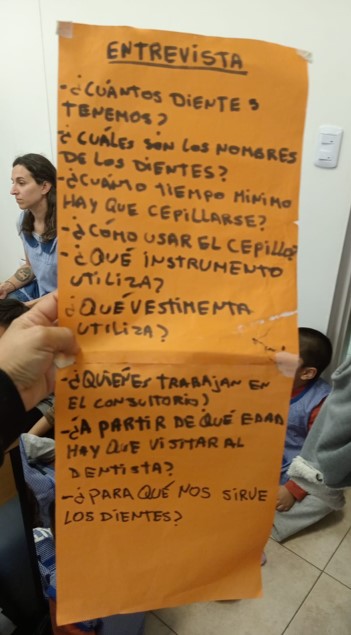 ENTREVISTA
-¿CUÁNTOS DIENTES
TENEMOS?
¿CUÁLES SON LOS NOMBRES
DE LOS DIENTES?
-¿CUÁNTO TIEMPO MÍNIMO
HAY QUE CEPILLARSE?
-¿CÓMO USAR EL CEPILLO?
-¿QUÉ INSTRUMENTO
UTILIZA?
¿QUÉ VESTIMENTA
UTILIZA?
-¿QUIENES TRABAJAN EN
EL CONSULTORIO?
-¿A PARTIR DE QUÉ EDAD
HAY QUE VISITAR AL
DENTISTA?
-¿PARA QUÉ NOS SIRVE
LOS DIENTES?